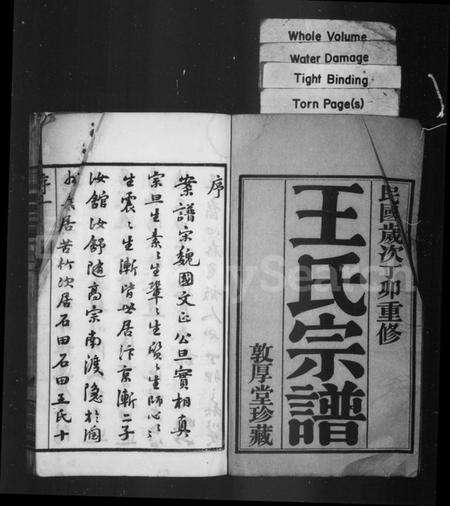 Whole Volume
Water Damage
Tight Binding
Torn Page(s)
民國歲次丁卯重修
王氏宗譜
敦厚堂珍藏
序
案譜宗魏國文正公旦實相真
宗旦生素〻生鞏〻生質〻生師心〻
生震〻生漸皆世居汴京漸二子
汝舘汝舒隨高宗南渡隱於國
居苦竹次居石田石田王氏十
序一